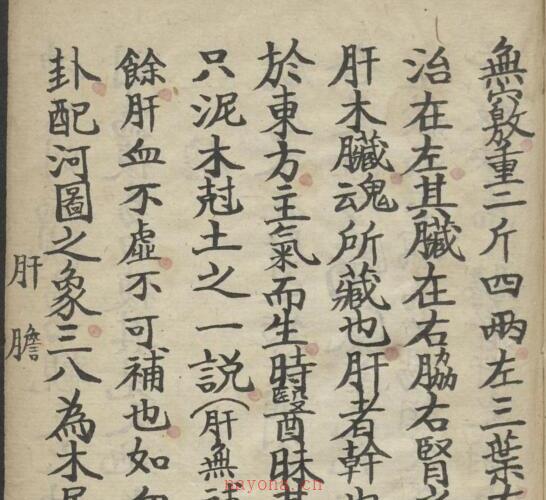 無穴敷重二斤四两左三葉
治在左其臟在右脇右腎
肝木臟魂所藏也肝者幹也
於東方主氣而生時醫昧
只泥木尅土之一説(肝無
餘肝血不虛不可補也如
卦配河圖之象三八為木居
肝膽
nayona.cn